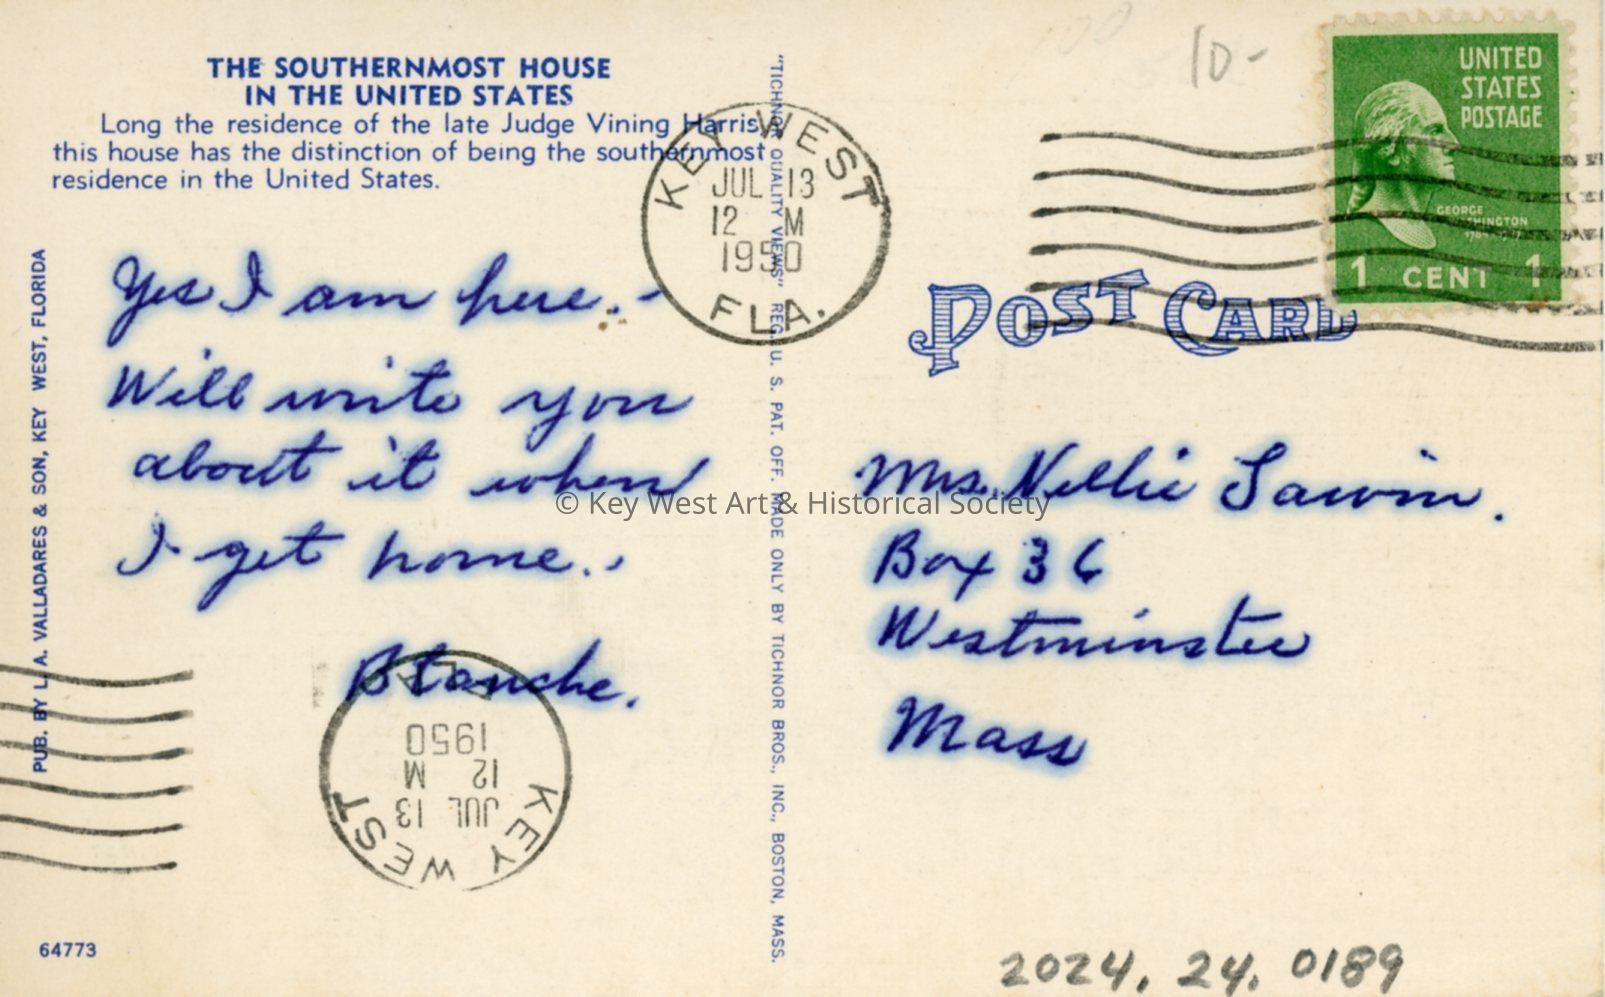 THE SOUTHERNMOST HOUSE
IN THE UNITED STATES
Long the residence of the late Judge Vining Harris,
this house has the distinction of being the southernmost
residence in the United States.
Yes I am here. -
Will write you
about it when
I get home..
Blanche.
PUB. BY L. A. VALLADARES & SON, KEY WEST, FLORIDA
64773
"TICHNOR QUALITY VIEWS" REG. U. S. PAT. OFF. MADE ONLY BY TICHNOR BROS., INC., BOSTON, MASS.
KEY WEST
JUL 13
12 M
1950
FLA.
10-
UNITED
STATES
POSTAGE
GEORGE
WASHINGTON
1 CENT 1
POST CARD
Mrs. Nellie Sawin.
Box 36
Westminster
Mass
KEY WEST
JUL 13
12 M
1950
FLA.
© Key West Art & Historical Society
2024. 24. 0189